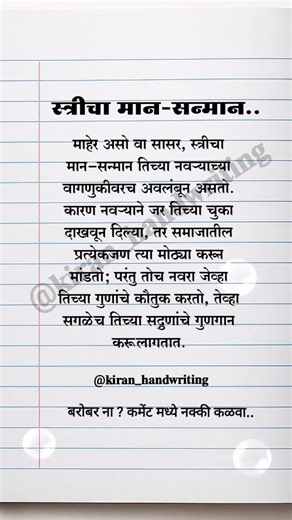 स्त्रीचा मान-सन्मान..
माहेर असो वा सासर, स्त्रीचा
मान–सन्मान तिच्या नवऱ्याच्या
वागणुकीवरच अवलंबून असतो.
कारण नवऱ्याने जर तिच्या चुका
दाखवून दिल्या, तर समाजातील
प्रत्येकजण त्या मोठ्या करून
मांडतो; परंतु तोच नवरा जेव्हा
तिच्या गुणांचे कौतुक करतो, तेव्हा
सगळेच तिच्या सद्गुणांचे गुणगान
करू लागतात.
@kiran_handwriting
@kiran_handwriting
बरोबर ना ? कमेंट मध्ये नक्की कळवा..